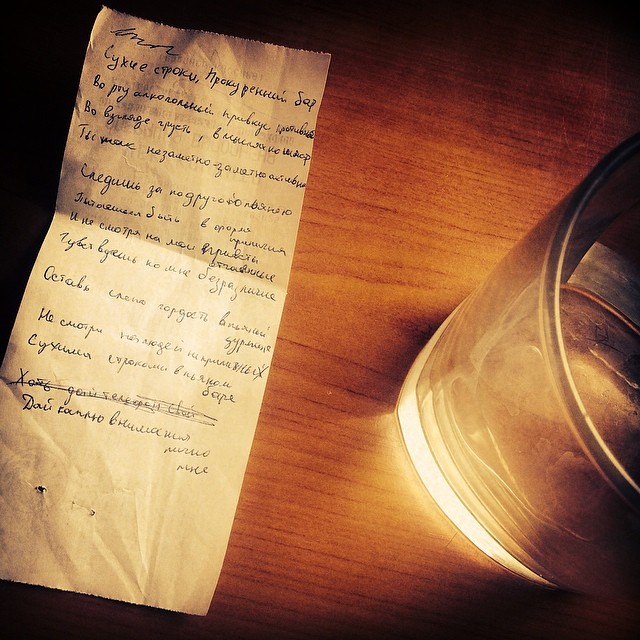 Сухие строки, Прокуренный бар
Во рту алкогольный привкус противный
Во взгляде грусть, в мыслях кошмар
Ты так незаметно-заметно активна
Следишь за подругой пьяною
Пытаешься быть в форме
приличия
И не смотря на мои приветы
отчаянные
Чувствуешь ко мне безразличие
Оставь гордость в пьяный
дурмане
Не смотри на людей неприличных
Сухими строками в пьяном
баре
Хоть дай телефон свой
Дай каплю внимания
лично
мне